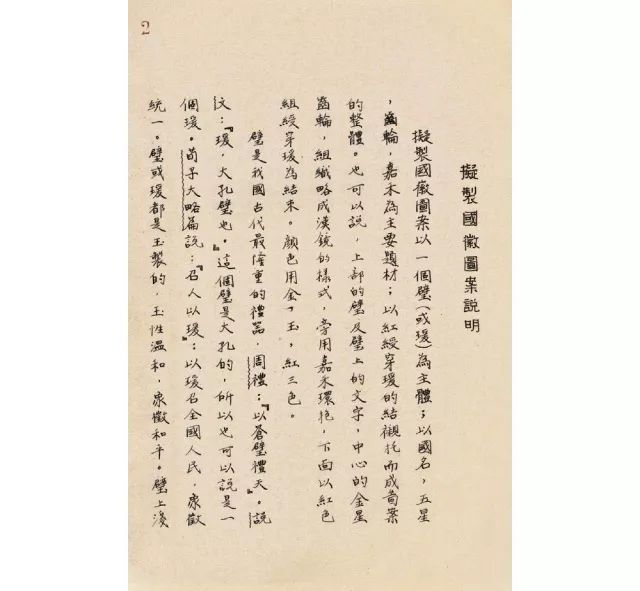 2
擬製國徽圖案說明
擬製國徽圖案以一個璧(或瑗)為主體；以國名，五星
，齒輪，嘉禾為主要題材；以紅綬穿瑗的結襯托而成圖案
的整體。也可以說，上部的璧及璧上的文字，中心的金星
齒輪，組織略成漢鏡的樣式，旁用嘉禾環抱，下面以紅色
組綬穿瑗為結束。顏色用金，玉，紅三色。
璧是我國古代最隆重的禮器，周禮：『以蒼璧禮天』。說
文：『瑗，大孔璧也。』這個璧是大孔的，所以也可以說是一
個瑗。荀子大略篇說：『召人以瑗』：以瑗召全國人民，象徵
統一。璧或瑗都是玉製的，玉性溫和，象徵和平。璧上淺